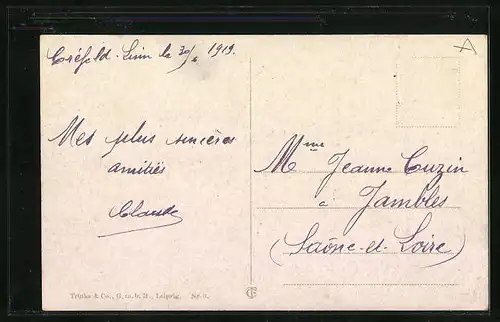 Créfeld-Linn le 30/6 1919.
Mes plus sincères
amitiés
Claude
Mme Jeanne Cuzin
à Jambles
(Saône-et-Loire)
Trinks & Co., G.m.b.H., Leipzig.